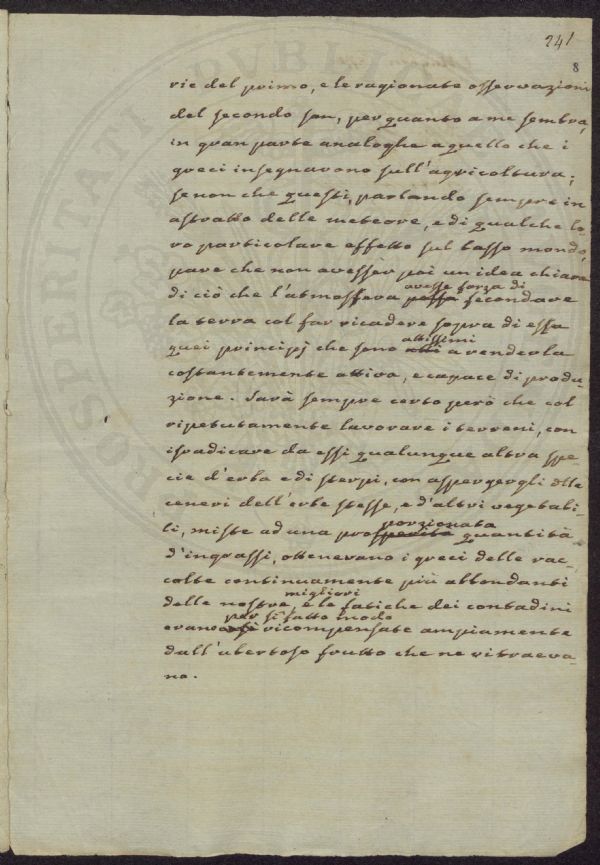 241
8
rie del primo, e le ragionate osservazioni
del secondo son, per quanto a me sembra,
in gran parte analoghe a quello che i
greci insegnavono sull'agricoltura;
se non che questi, parlando sempre in
astratto delle meteore, e di qualche lo-
ro particolare effetto sul basso mondo,
pare che non avesser poi un idea chiara
avesse forza di
di ciò che l'atmosfera possa fecondare
la terra col far ricadere sopra di essa
attissimi
quei principj che sono atti a renderla
costantemente attiva, e capace di produ-
zione. Sarà sempre certo però che col
ripetutamente lavorare i terreni, con
isradicare da essi qualunque altra spe-
cie d'erba e di sterpi, con aspergergli delle
ceneri dell'erbe stesse, e d'altri vegetabi-
porzionata
li, miste ad una pro quantità
d'ingrassi, ottenevano i greci delle rac-
colte continuamente più abbondanti
migliori
delle nostre, e le fatiche dei contadini
per sì fatto modo
erano ricompensate ampiamente
dall'ubertoso frutto che ne ritraeva-
no.
PROSPERITATI PUBLICAE